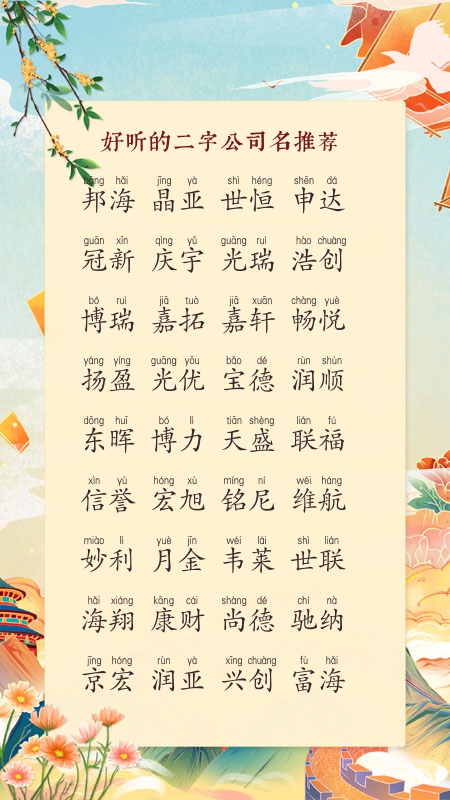 好听的二字公司名推荐
bāng hǎi jīng yà shì héng shēn dá
邦海 晶亚 世恒 申达
guān xīn qìng yǔ guāng ruì hào chuàng
冠新 庆宇 光瑞 浩创
bó ruì jiā tuò jiā xuān chàng yuè
博瑞 嘉拓 嘉轩 畅悦
yáng yíng guāng yōu bǎo dé rùn shùn
扬盈 光优 宝德 润顺
dōng huī bó lì tiān shèng lián fú
东晖 博力 天盛 联福
xìn yù hóng xù míng ní wéi háng
信誉 宏旭 铭尼 维航
miào lì yuè jīn wéi lái shì lián
妙利 月金 韦莱 世联
hǎi xiáng kāng cái shàng dé chí nà
海翔 康财 尚德 驰纳
jīng hóng rùn yà xīng chuàng fù hǎi
京宏 润亚 兴创 富海